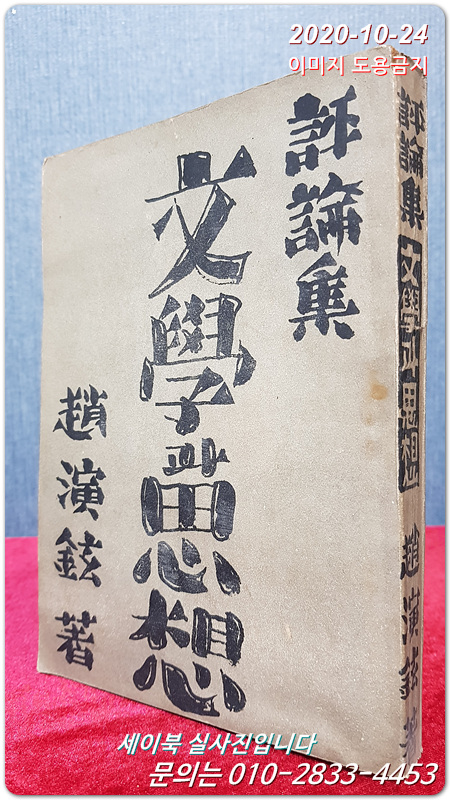 2020-10-24
이미지 도용금지
評論集
文學과思想
趙演鉉 著
評論集
文學과思想
趙演鉉著
세이북 실사진입니다
문의는 010-2833-4453